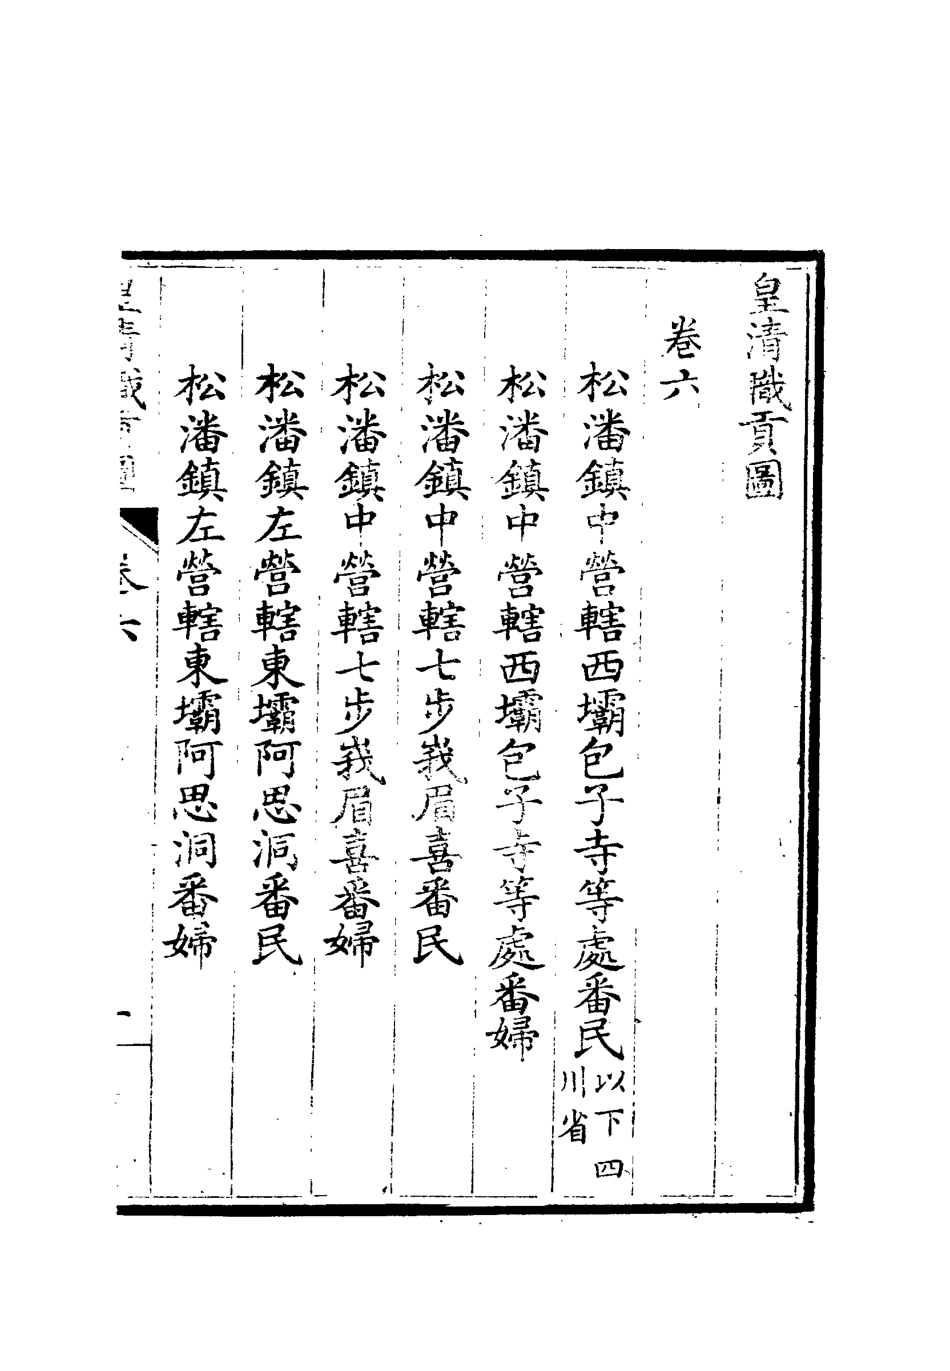 皇清職貢圖
卷六
松潘鎮中營轄西壩包子寺等處番民以下四
川省
松潘鎮中營轄西壩包子寺等處番婦
松潘鎮中營轄七步峩眉喜番民
松潘鎮中營轄七步峩眉喜番婦
松潘鎮左營轄東壩阿思洞番民
松潘鎮左營轄東壩阿思洞番婦
皇清職貢圖
卷六
一